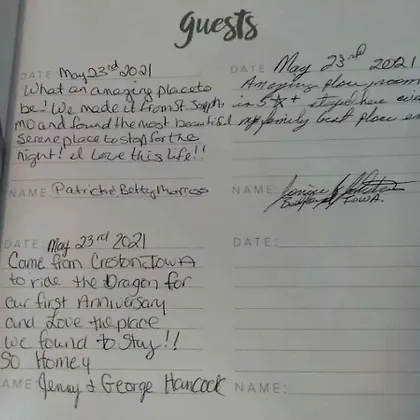 guests
DATE May 23rd 2021
What an amazing place to
be! We made it from St Joseph
MO and found the most beautiful
serene place to stop for the
night! I Love this life!!
NAME Patrich & Betty
DATE May 23rd 2021
Amazing place, room
is 5☆+
my family best place
NAME:
IOWA.
DATE May 23rd 2021
Came from Creston, IOWA
to ride the Dragon for
our first Anniversary
and Love the place
we found to Stay!!
SO Homey
AME Jenny & George Hancock
DATE:
NAME: